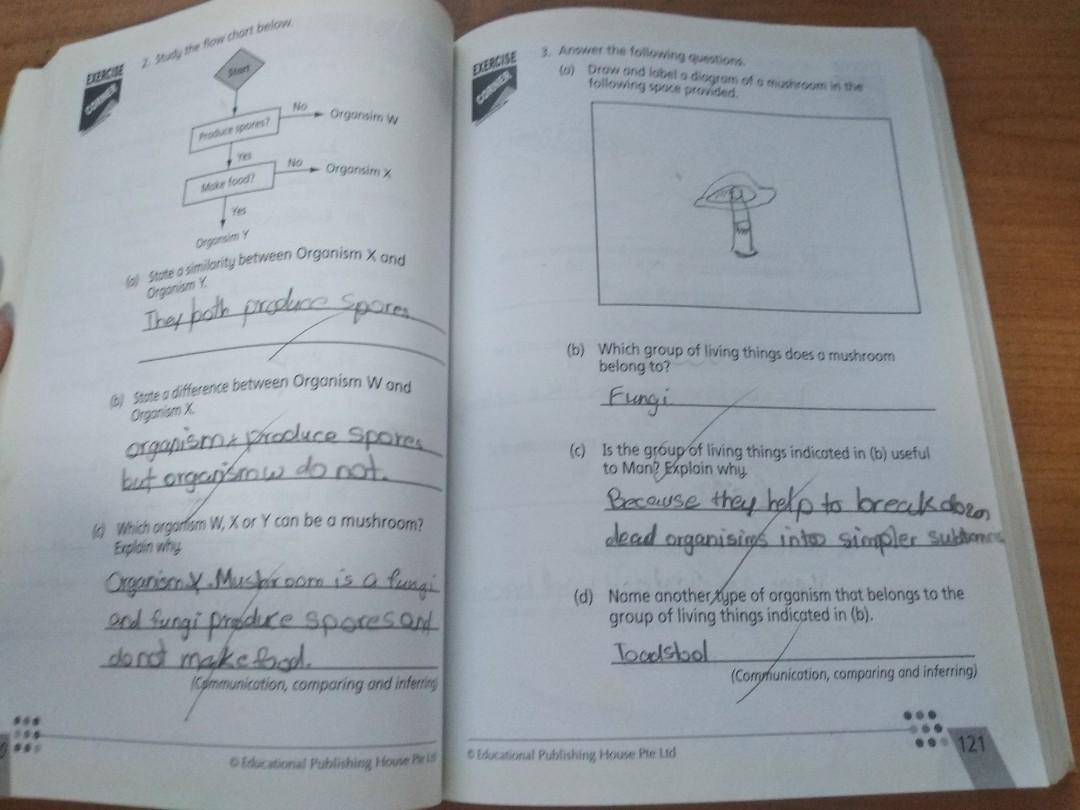 EXERCISE
CORNER
2. Study the flow chart below.
Start
Produce spores?
No
Organsim W
Yes
Make food?
No
Organsim X
Yes
Organsim Y
(a) State a similarity between Organism X and
Organism Y.
They both produce spores.
(b) State a difference between Organism W and
Organism X.
organism x produce spores
but organism w do not.
(c) Which organism W, X or Y can be a mushroom?
Explain why.
Organism X. Mushroom is a fungi
and fungi produce spores and
do not make food.
(Communication, comparing and inferring)
© Educational Publishing House Pte Ltd
EXERCISE
CORNER
3. Answer the following questions.
(a) Draw and label a diagram of a mushroom in the
following space provided.
(b) Which group of living things does a mushroom
belong to?
Fungi
(c) Is the group of living things indicated in (b) useful
to Man? Explain why.
Because they help to break down
dead organisims into simpler
(d) Name another type of organism that belongs to the
group of living things indicated in (b).
Toadstool
(Communication, comparing and inferring)
© Educational Publishing House Pte Ltd
121